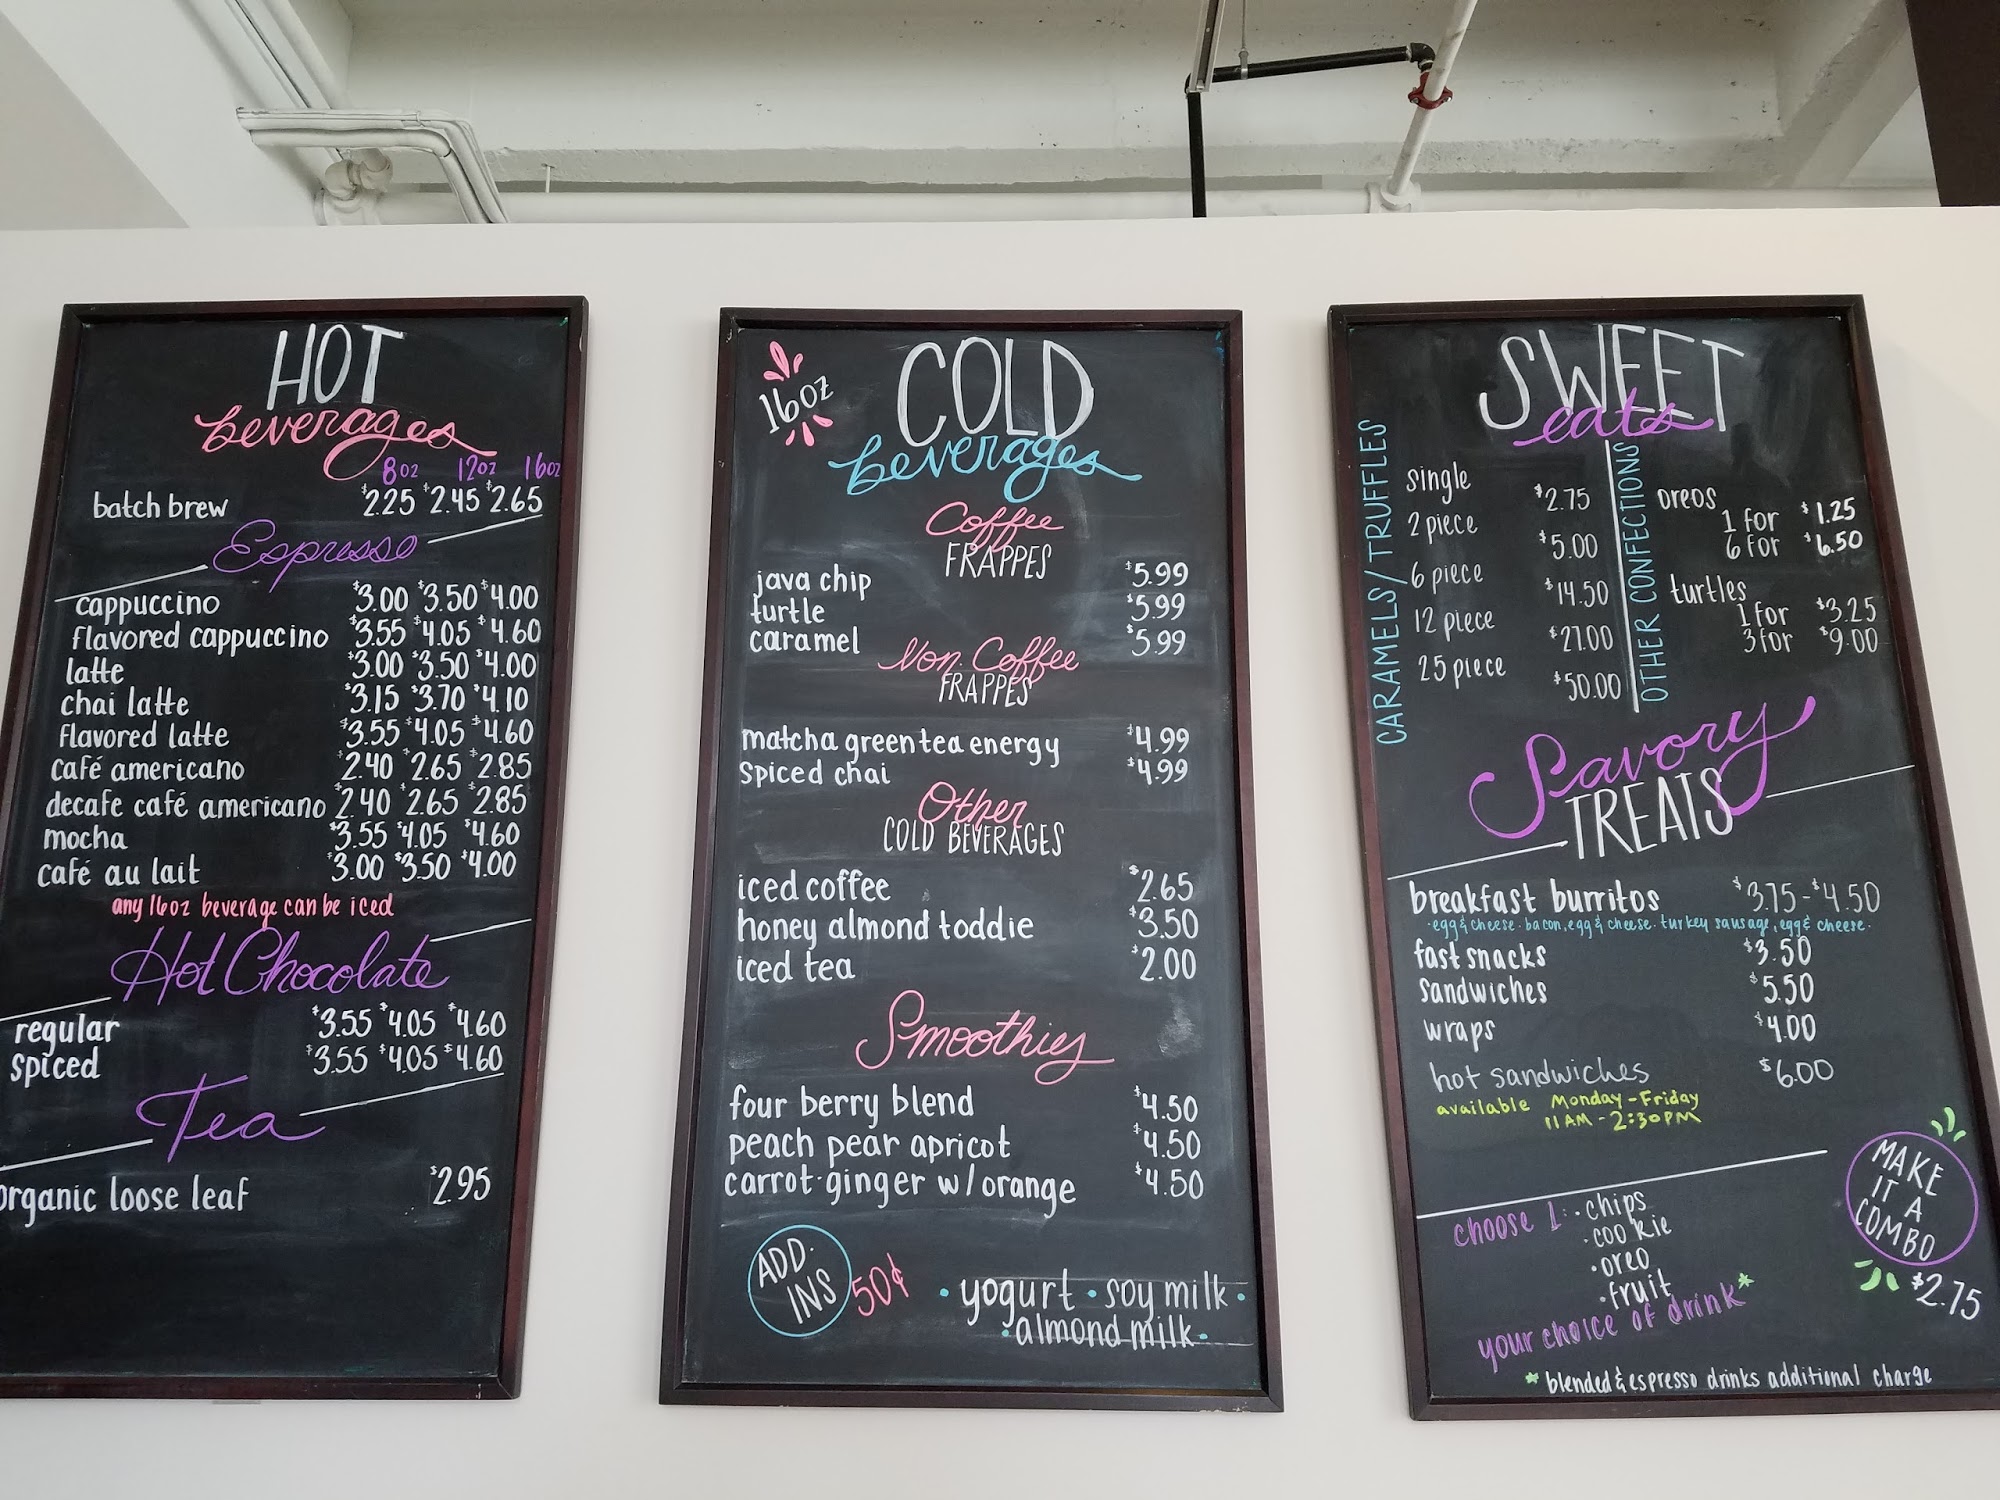 HOT
beverages
8oz 12oz 16oz
batch brew $2.25 $2.45 $2.65
Espresso
cappuccino $3.00 $3.50 $4.00
flavored cappuccino $3.55 $4.05 $4.60
latte $3.00 $3.50 $4.00
chai latte $3.15 $3.70 $4.10
flavored latte $3.55 $4.05 $4.60
café americano $2.40 $2.65 $2.85
decafe café americano $2.40 $2.65 $2.85
mocha $3.55 $4.05 $4.60
café au lait $3.00 $3.50 $4.00
any 16oz beverage can be iced
Hot Chocolate
regular $3.55 $4.05 $4.60
spiced $3.55 $4.05 $4.60
Tea
organic loose leaf $2.95
16oz
COLD
beverages
Coffee
FRAPPES
java chip $5.99
turtle $5.99
caramel $5.99
Non-Coffee
FRAPPES
matcha green tea energy $4.99
spiced chai $4.99
Other
COLD BEVERAGES
iced coffee $2.65
honey almond toddie $3.50
iced tea $2.00
Smoothies
four berry blend $4.50
peach pear apricot $4.50
carrot-ginger w/orange $4.50
ADD-
INS
50¢
• yogurt • soy milk •
• almond milk •
SWEET
eats
CARAMELS/TRUFFLES
single $2.75
2 piece $5.00
6 piece $14.50
12 piece $27.00
25 piece $50.00
OTHER CONFECTIONS
oreos
1 for $1.25
6 for $6.50
turtles
1 for $3.25
3 for $9.00
Savory
TREATS
breakfast burritos $3.75-$4.50
·egg & cheese· bacon, egg & cheese· turkey sausage, egg & cheese·
fast snacks $3.50
sandwiches $5.50
wraps $4.00
hot sandwiches $6.00
available Monday-Friday
11AM-2:30PM
MAKE
IT A
COMBO
$2.75
choose 1: • chips
• cookie
• oreo
• fruit
your choice of drink*
* blended & espresso drinks additional charge